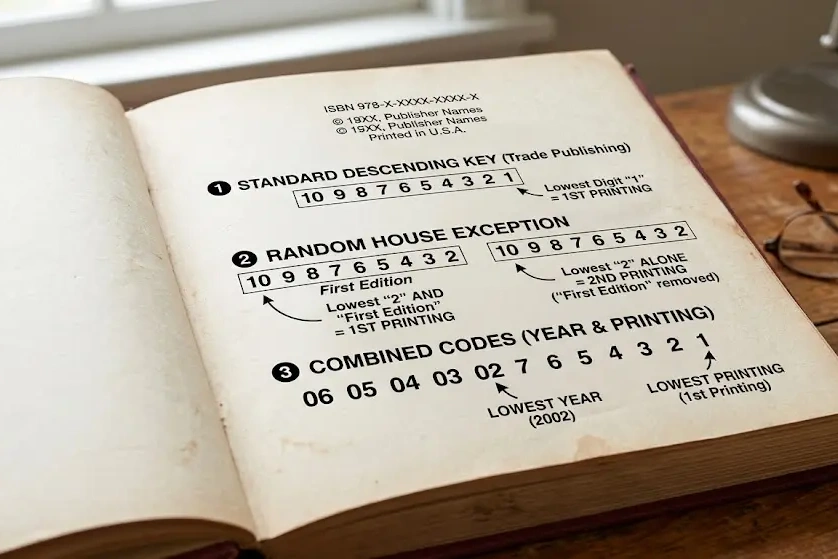 ISBN 978-X-XXXX-XXXX-X
© 19XX, Publisher Names
© 19XX, Publisher Names
Printed in U.S.A.
1 STANDARD DESCENDING KEY (Trade Publishing)
10 9 8 7 6 5 4 3 2 1
Lowest Digit "1"
= 1ST PRINTING
2 RANDOM HOUSE EXCEPTION
10 9 8 7 6 5 4 3 2
First Edition
Lowest "2" AND
"First Edition"
= 1ST PRINTING
10 9 8 7 6 5 4 3 2
Lowest "2" ALONE
= 2ND PRINTING
("First Edition" removed)
3 COMBINED CODES (YEAR & PRINTING)
06 05 04 03 02 7 6 5 4 3 2 1
LOWEST YEAR
(2002)
LOWEST PRINTING
(1st Printing)